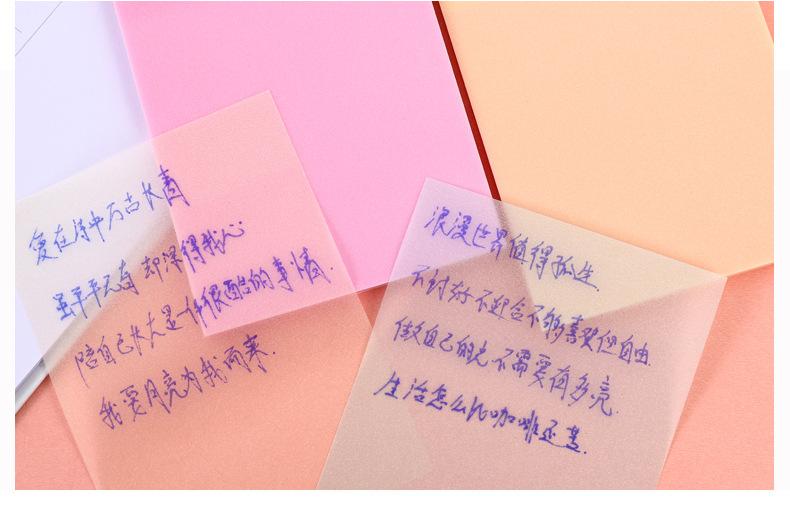 爱在诗中万古长青
虽平平无奇 却深得我心
陪自己长大是一件很酷的事情.
我要月亮为我而来.
浪漫世界值得孤生.
不讨好不迎合不够喜欢但自由.
做自己的光不需要有多亮.
生活怎么比咖啡还苦.